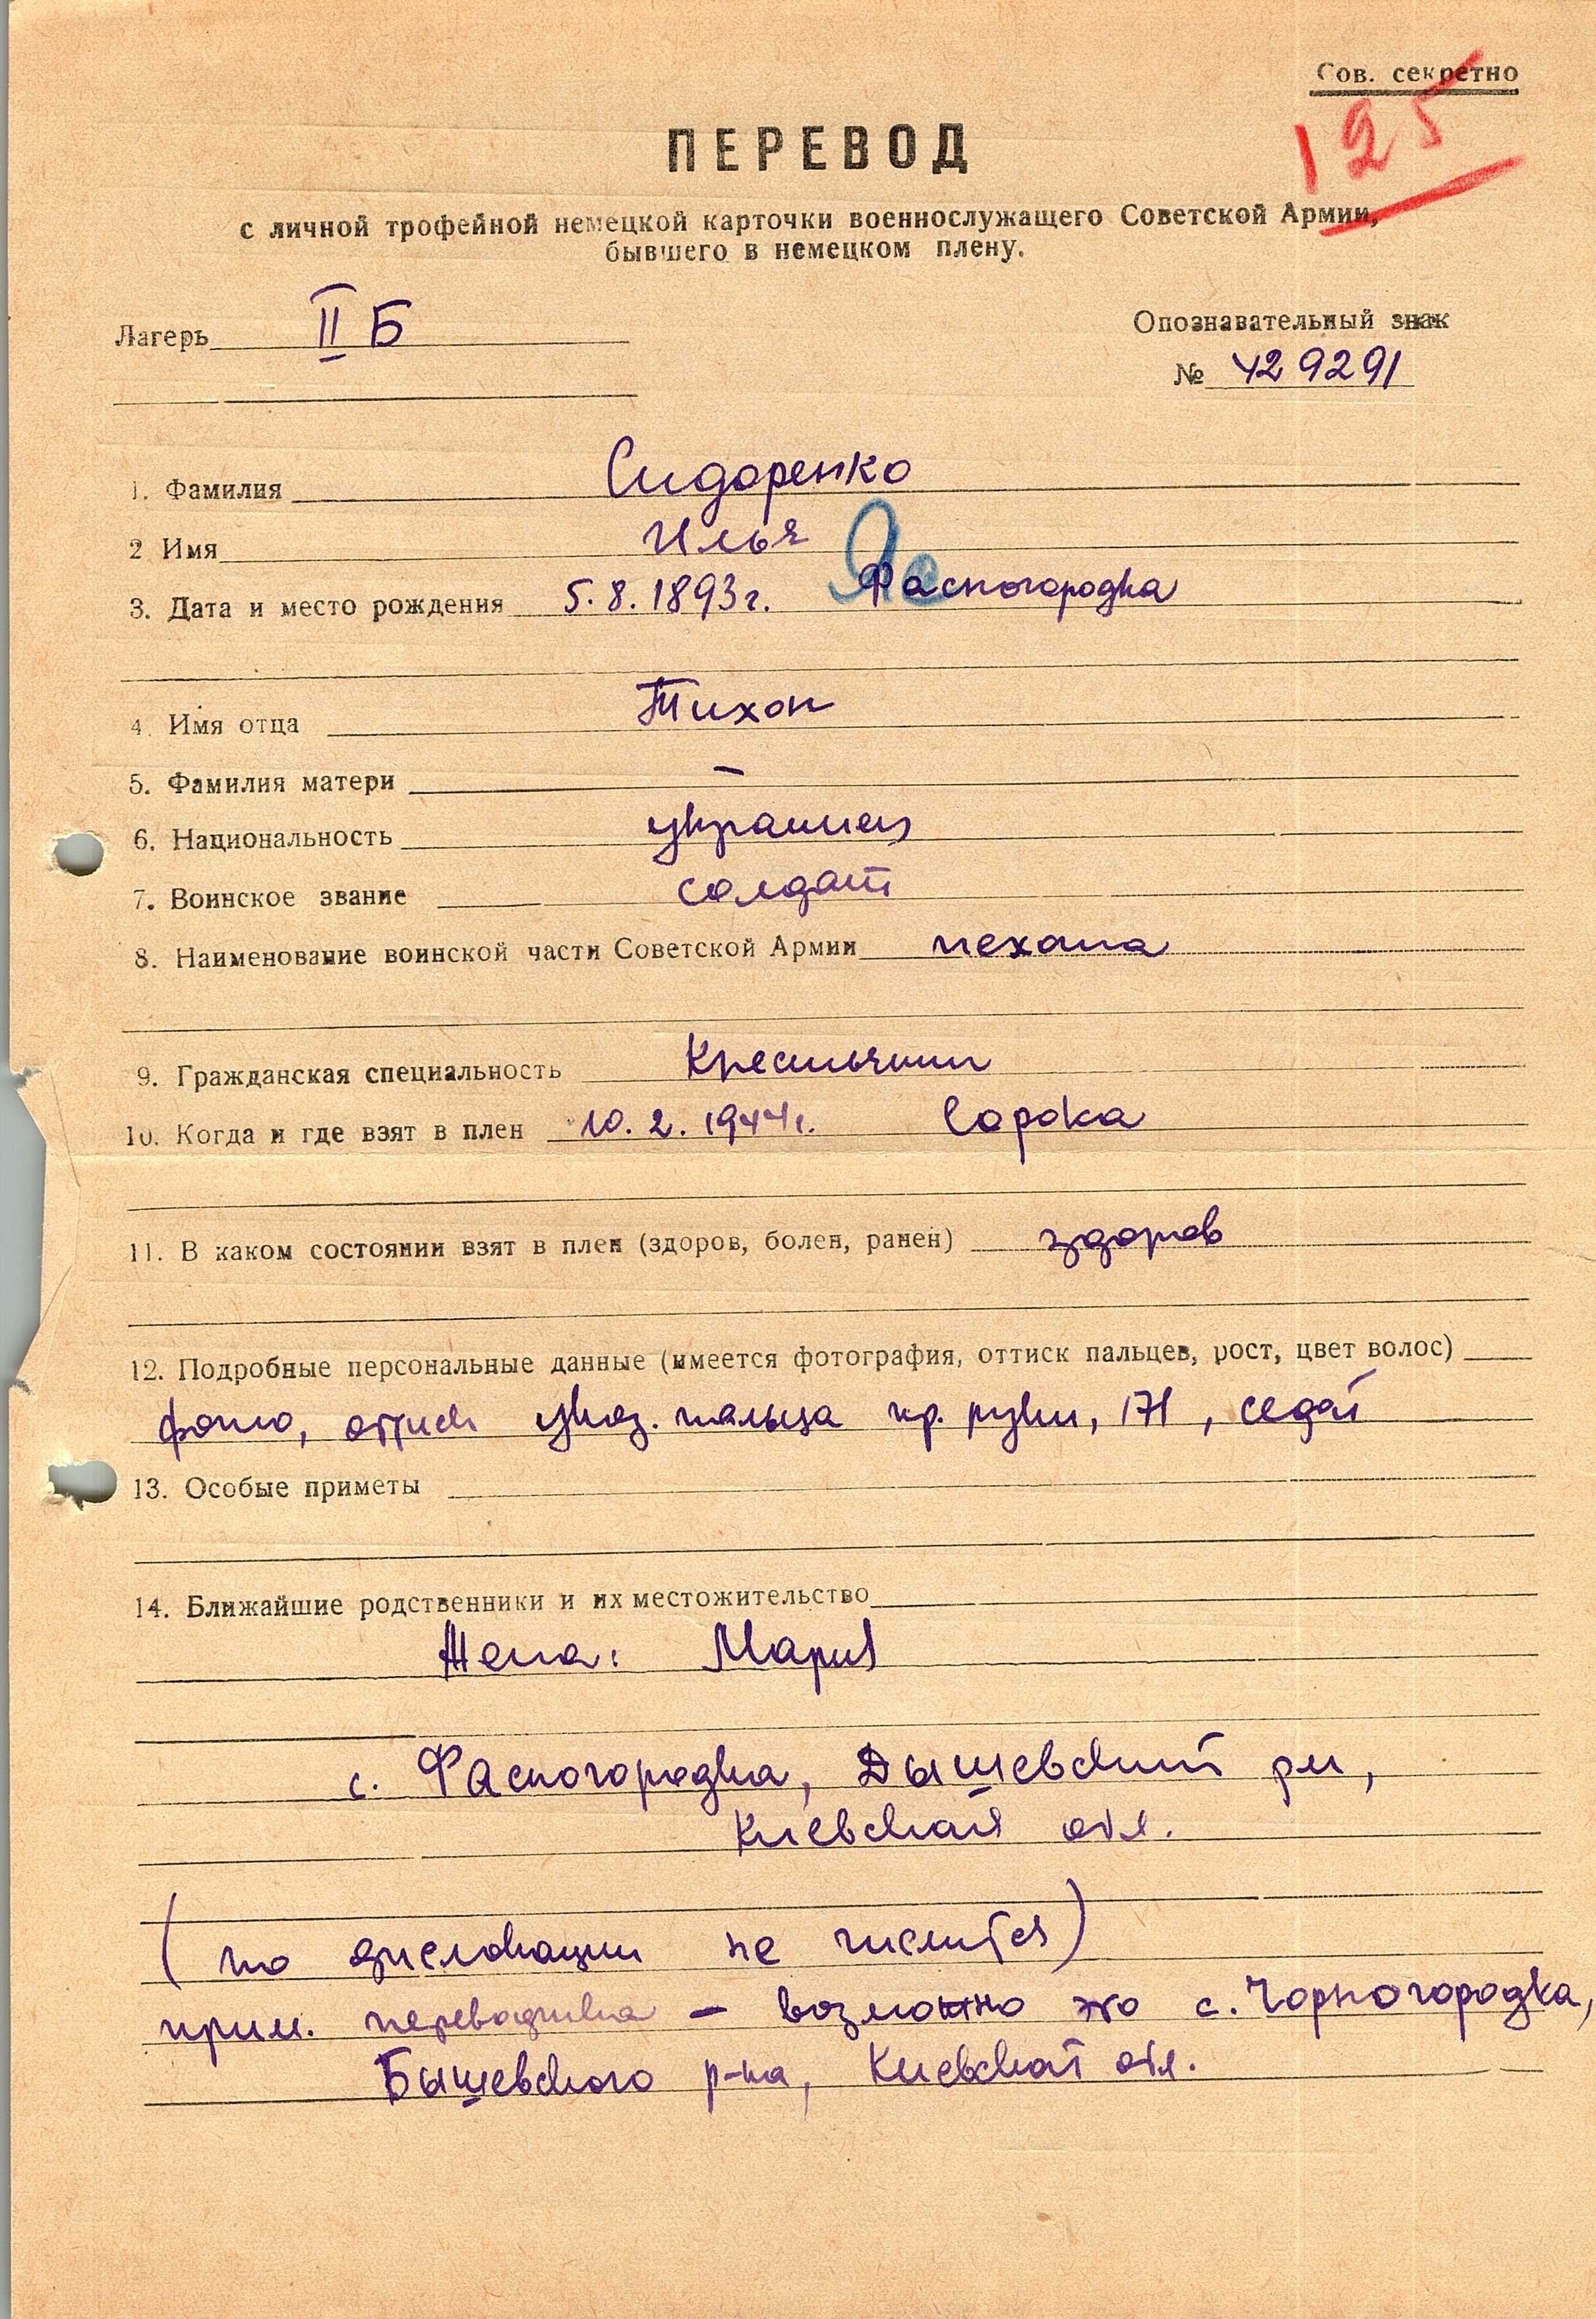 Сов. секретно
125
ПЕРЕВОД
с личной трофейной немецкой карточки военнослужащего Советской Армии,
бывшего в немецком плену.
Лагерь II Б
Опознавательный знак
№ 429291
1. Фамилия Сидоренко
2 Имя Илья
3. Дата и место рождения 5.8.1893г. Фасногородка
4. Имя отца Тихон
5. Фамилия матери —
6. Национальность украинец
7. Воинское звание солдат
8. Наименование воинской части Советской Армии пехота
9. Гражданская специальность Крестьянин
10. Когда и где взят в плен 10.2.1944г. Сорока
11. В каком состоянии взят в плен (здоров, болен, ранен) здоров
12. Подробные персональные данные (имеется фотография, оттиск пальцев, рост, цвет волос)
фото, оттиск указ. пальца пр. руки, 171, седой
13. Особые приметы
14. Ближайшие родственники и их местожительство
Жена: Мария
с. Фасногородка, Дышевский рн,
Киевская обл.
(по дислокации не числится)
прим. переводчика – возможно это с. Чорногородка,
Бышевского р-на, Киевской обл.